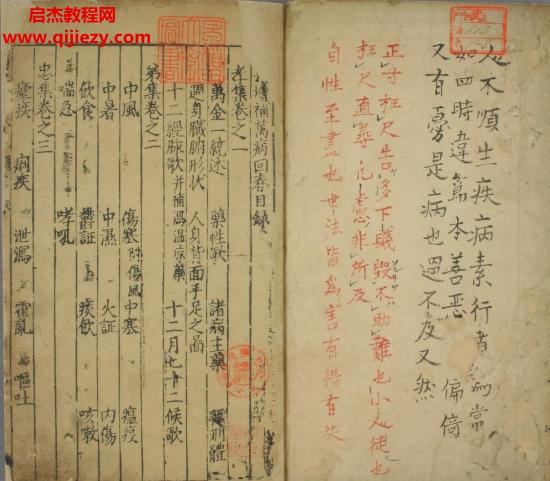 启杰教程网
www.qijiezy.com
人不順生疾病素行者為常
如四時違篇本善惡 偏倚
又有憂是病也過不及又然
正寸枉尺告多下幾毀不助難也小人徒也
枉尺直尋凡慮非所及
自性至盡也世法皆為言有得有失
補萬病回春目錄
孝集卷之一
萬金一統述 藥性歌 諸病主藥 形體
週身臟腑形状 人身背面手足之圖
十二經脉歌并補瀉温凉藥 十二月七十二候歌
弟集卷之二
中風 傷寒附傷風 中寒 瘟疫
中暑 中濕 火証 内傷
飲食 鬱証 痰飲 咳嗽
喘急 哮吼
忠集卷之三
瘧疾 痢疾 泄瀉 霍亂 嘔吐